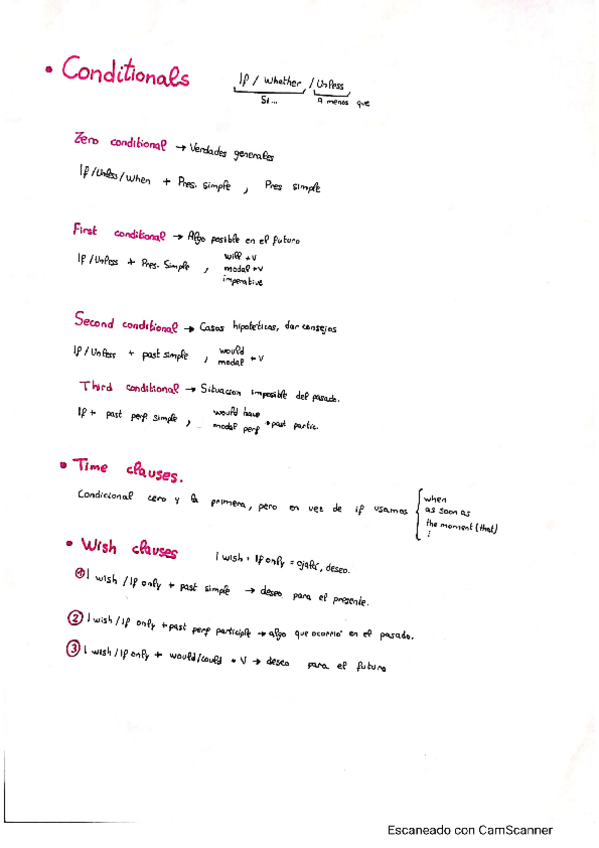 • Conditionals
If / Whether / Unless
Si...
a menos que
Zero conditional → Verdades generales
If /Unless / when + Pres. simple , Pres simple
First conditional → Algo posible en el futuro
If /Unless + Pres. Simple , will + V
modal + V
imperative
Second conditional → Casos hipoteticos, dar consejos
If /Unless + past simple , would
modal + V
Third conditional → Situacion imposible del pasado.
If + past perf simple , would have
modal perf + past partic.
• Time clauses.
Condicional cero y la primera, pero en vez de if usamos
when
as soon as
the moment (that)
• Wish clauses
I wish = If only = ojalá, deseo.
① I wish / If only + past simple → deseo para el presente.
② I wish / If only + past perf participle → algo que ocurrió en el pasado.
③ I wish / If only + would/could + V → deseo para el futuro
Escaneado con CamScanner